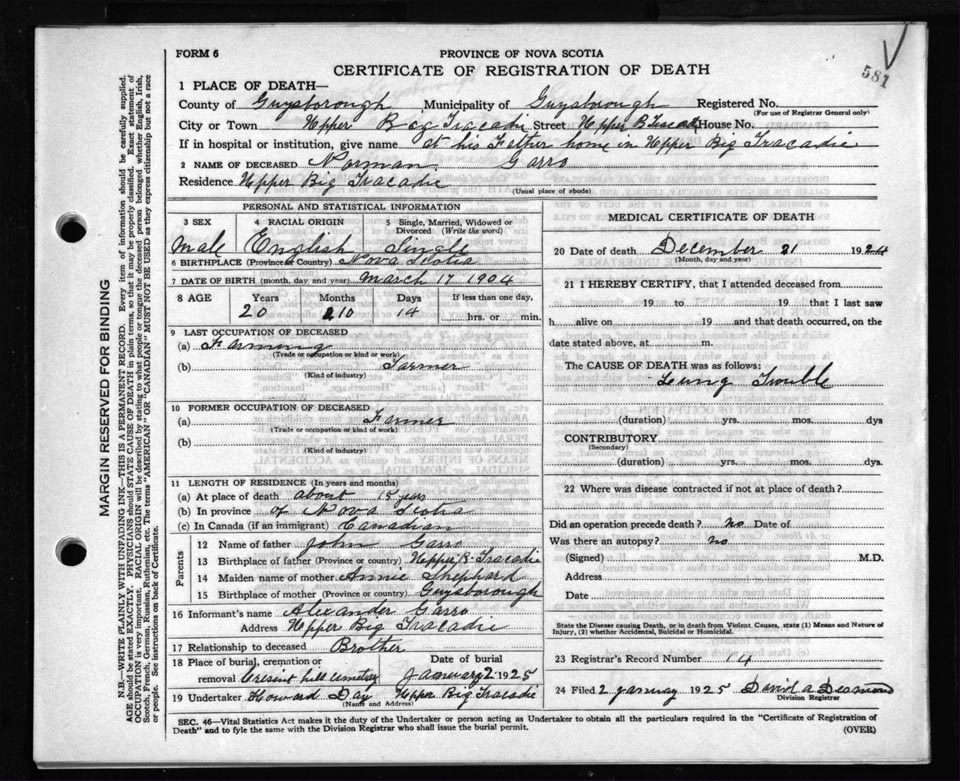 FORM 6
PROVINCE OF NOVA SCOTIA
581
CERTIFICATE OF REGISTRATION OF DEATH
1 PLACE OF DEATH—
County of Guysborough Municipality of Guysborough Registered No.
(For use of Registrar General only)
City or Town Upper Big Tracadie Street Upper B Tracadie House No.
If in hospital or institution, give name at his Father home in Upper Big Tracadie
2 NAME OF DECEASED Norman Garro
Residence Upper Big Tracadie
(Usual place of abode)
PERSONAL AND STATISTICAL INFORMATION
3 SEX 4 RACIAL ORIGIN 5 Single, Married, Widowed or Divorced (Write the word)
Male English Single
6 BIRTHPLACE (Province or Country) Nova Scotia
7 DATE OF BIRTH (month, day and year) March 17 1904
8 AGE Years Months Days If less than one day,
20 10 14 hrs. or min.
9 LAST OCCUPATION OF DECEASED
(a) Farming
(Trade or occupation or kind or work)
(b) Farmer
(Kind of industry)
10 FORMER OCCUPATION OF DECEASED
(a) Farmer
(Trade or occupation or kind of work)
(b)
(Kind of industry)
11 LENGTH OF RESIDENCE (In years and months)
(a) At place of death about 15 years
(b) In province of Nova Scotia
(c) In Canada (if an immigrant) Canadian
Parents
12 Name of father John Garro
13 Birthplace of father (Province or country) Upper B. Tracadie
14 Maiden name of mother Annie Shephard
15 Birthplace of mother (Province or country) Guysborough
16 Informant's name Alexander Garro
Address Upper Big Tracadie
17 Relationship to deceased Brother
18 Place of burial, cremation or removal Cresint hill cemetery
Date of burial
January 2 1925
19 Undertaker Howard Day Upper Big Tracadie
(Name and Address)
MEDICAL CERTIFICATE OF DEATH
20 Date of death December 31 1924
(Month, day and year)
21 I HEREBY CERTIFY, that I attended deceased from
19 to 19 that I last saw
h alive on 19 and that death occurred, on the
date stated above, at m.
The CAUSE OF DEATH was as follows:
Lung Trouble
(duration) yrs. mos. dys
CONTRIBUTORY
(Secondary)
(duration) yrs. mos. dys.
22 Where was disease contracted if not at place of death?
Did an operation precede death? No Date of
Was there an autopsy? No
(Signed) M.D.
Address
Date
State the Disease causing Death, or in death from Violent Causes, state (1) Means and Nature of
Injury, (2) whether Accidental, Suicidal or Homicidal.
23 Registrar's Record Number 14
24 Filed 2 January 1925 David A Desmond
Division Registrar
SEC. 46—Vital Statistics Act makes it the duty of the Undertaker or person acting as Undertaker to obtain all the particulars required in the "Certificate of Registration of
Death" and to fyle the same with the Division Registrar who shall issue the burial permit.
(OVER)
MARGIN RESERVED FOR BINDING
N.B.—WRITE PLAINLY WITH UNFADING INK—THIS IS A PERMANENT RECORD. Every item of information should be carefully supplied.
AGE should be stated EXACTLY. PHYSICIANS should STATE CAUSE OF DEATH in plain terms, so that it may be properly classified. Exact statement of
OCCUPATION is very important. RACIAL ORIGIN will be described by stating to what people or tongue the deceased person belonged whether English, Irish,
Scotch, French, German, Russian, Ruthenian, etc. The terms "AMERICAN" OR "CANADIAN" MUST NOT BE USED as they express citizenship but not a race
or people. See instructions on back of Certificate.